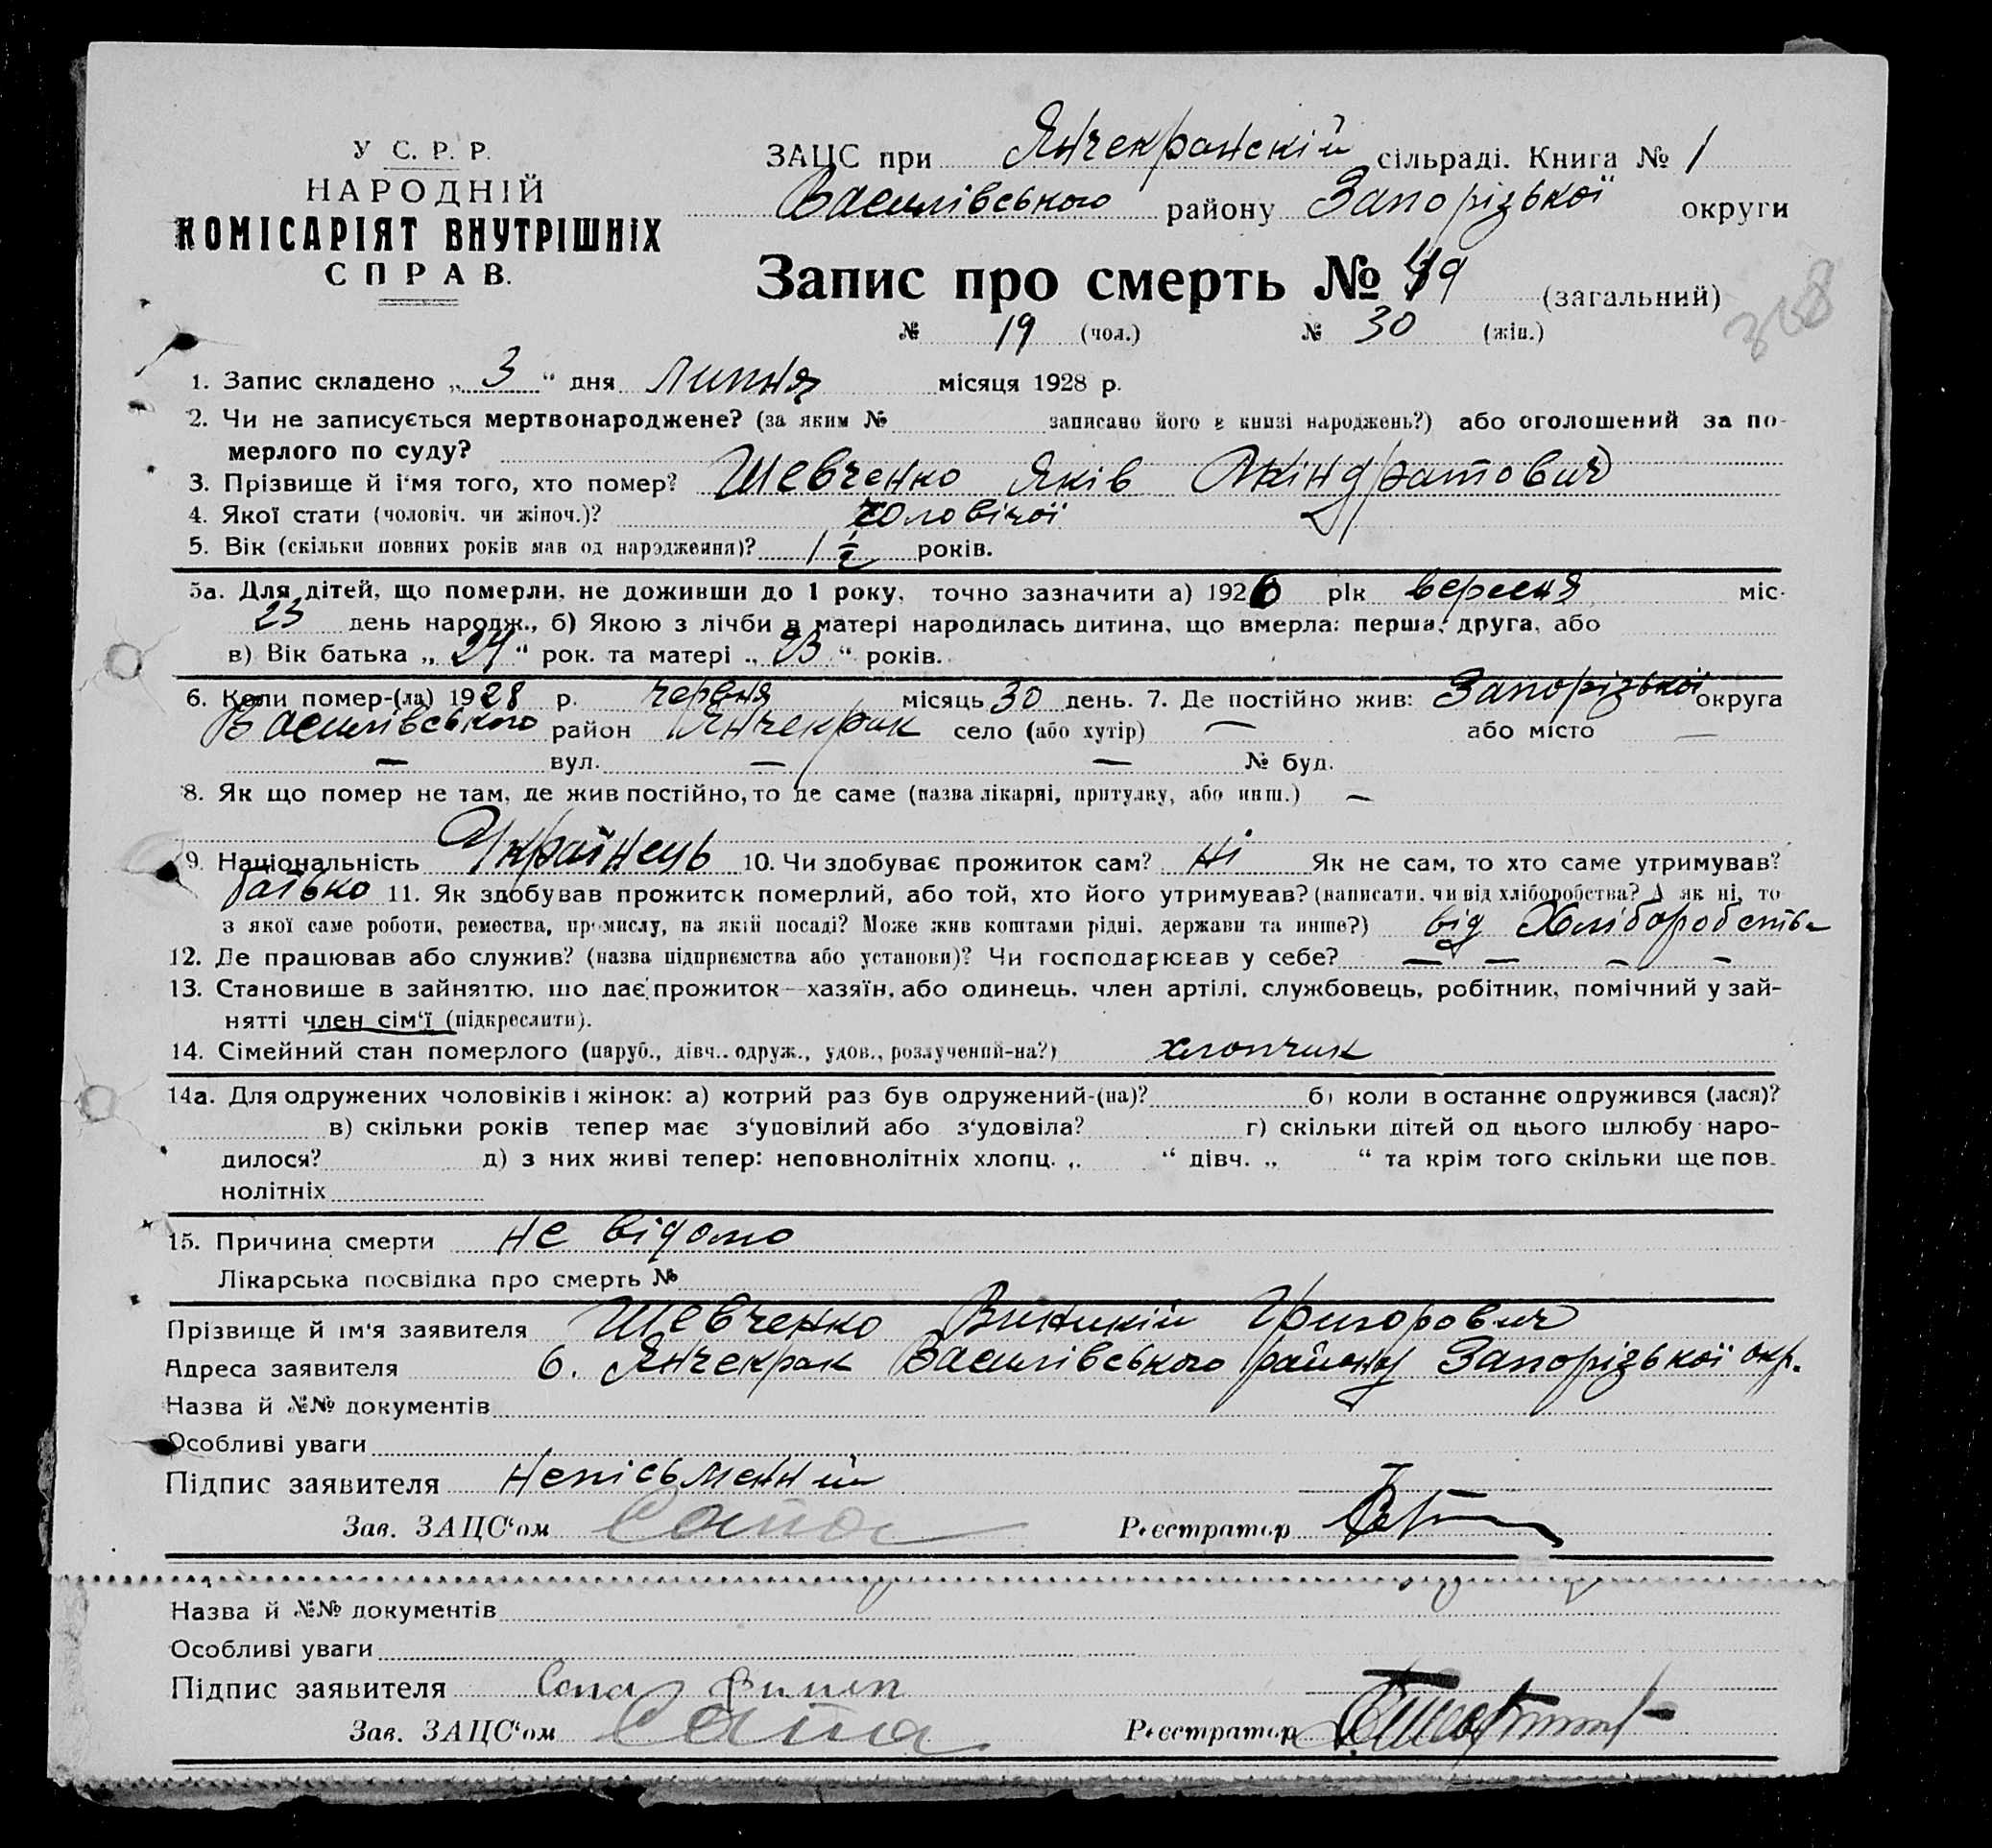 У С. Р. Р.
НАРОДНІЙ
КОМІСАРІЯТ ВНУТРІШНІХ
СПРАВ.
ЗАЦС при Янчекранскій сільраді. Книга № 1
Василівського району Запорізької округи
Запис про смерть № 49 (загальний)
№ 19 (чол.) № 30 (жін.)
1. Запис складено „ 3 “ дня липня місяця 1928 р.
2. Чи не записується мертвонароджене? (за яким № записано його в книзі народжень?) або оголошений за по-
мерлого по суду?
3. Прізвище й і'мя того, хто помер? Шевченко Яків Окіндратович
4. Якої стати (чоловіч. чи жіноч.)? чоловічої
5. Вік (скільки повних років мав од народження)? 1 ½ років.
5а. Для дітей, що померли, не доживши до 1 року, точно зазначити а) 1926 рік вересня міс.
23 день народж., б) Якою з лічби в матері народилась дитина, що вмерла: перша, друга, або
в) Вік батька „ 24 “ рок. та матері „ 23 “ років.
6. Коли помер-(ла) 1928 р. червня місяць 30 день. 7. Де постійно жив: Запорізької округа
Василівського район Янчекрак село (або хутір) — або місто —
— вул. — — № буд.
8. Як що помер не там, де жив постійно, то де саме (назва лікарні, притулку, або инш.) —
9. Національність Українець 10. Чи здобуває прожиток сам? ні Як не сам, то хто саме утримував?
батько 11. Як здобував прожиток померлий, або той, хто його утримував? (написати, чи від хліборобства? А як ні, то
з якої саме роботи, ремества, промислу, на якій посаді? Може жив коштами рідні, держави та инше?) від Хліборобства
12. Де працював або служив? (назва підприємства або установи)? Чи господарював у себе? — — — —
13. Становише в зайняттю, що дає прожиток—хазяїн, або одинець, член артілі, службовець, робітник, помічний у зай-
нятті член сім'ї (підкреслити).
14. Сімейний стан померлого (паруб., дівч., одруж., удов., розлучений-на?) хлопчик
14а. Для одружених чоловіків і жінок: а) котрий раз був одружений-(на)? б) коли в останнє одружився (лася)?
в) скільки років тепер має з'удовілий або з'удовіла? г) скільки дітей од цього шлюбу наро-
дилося? д) з них живі тепер: неповнолітніх хлопц. „ “ дівч. „ “ та крім того скільки ще пов.
нолітніх
15. Причина смерти не відомо
Лікарська посвідка про смерть №
Прізвище й ім'я заявителя Шевченко Григорович
Адреса заявителя с. Янчекрак Василівського району Запорізької окр.
Назва й №№ документів
Особливі уваги
Підпис заявителя Непісьменній
Зав. ЗАЦС'ом Реєстратор
Назва й №№ документів
Особливі уваги
Підпис заявителя
Зав. ЗАЦС'ом Реєстратор